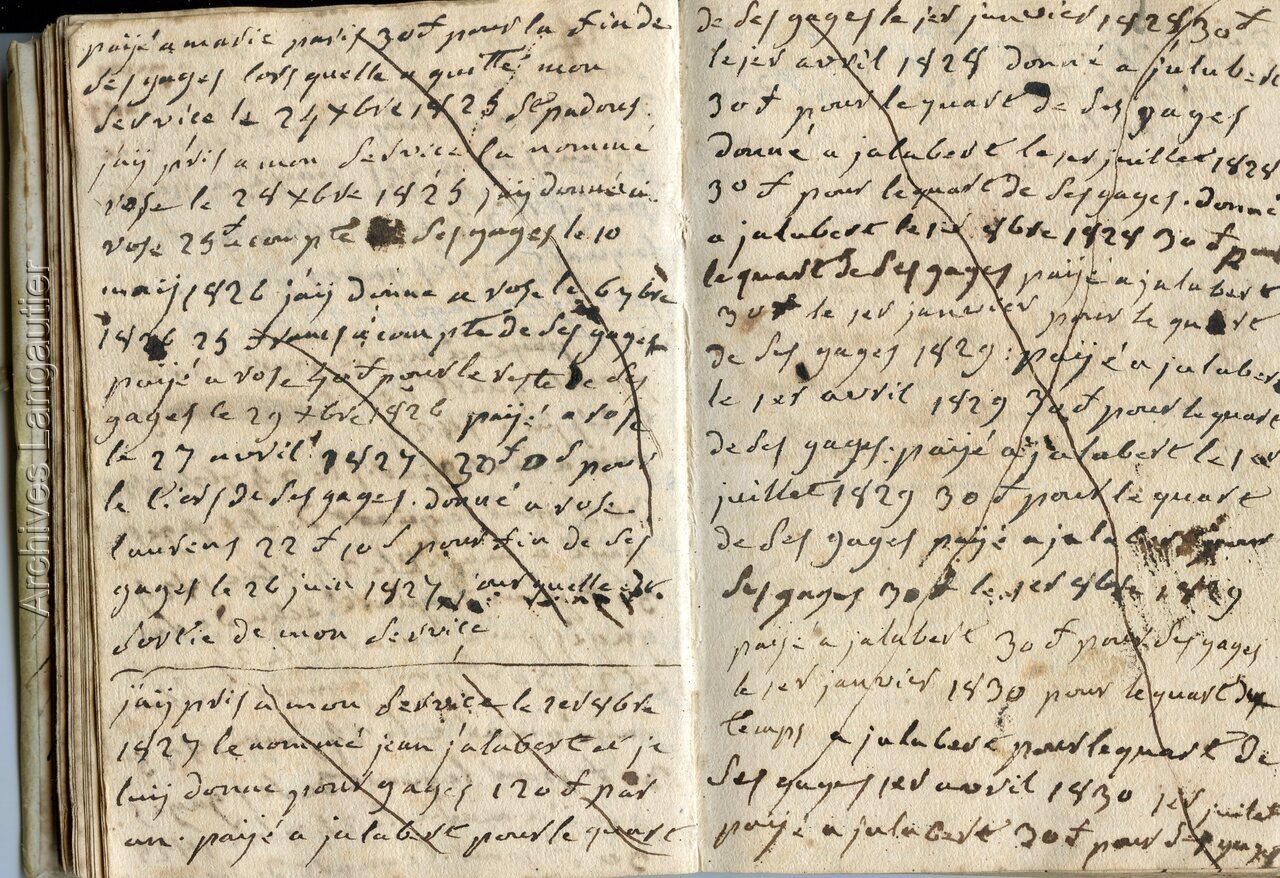 paijé a marie paris 30₶ pour la fin de
ses gages lors quelle a quitté mon
service le 24 xbre 1825
jaij pris a mon service la nommé
rose le 28 xbre 1825 jaij donné a
rose 25₶ acompte ses gages le 10
maij 1826 jaij donné a rose le 6 9bre
1826 25 frans acompte de ses gages
paijé a rose 40₶ pour le reste de ses
gages le 29 xbre 1826 paijé a rose
le 27 avril 1827 pour
le tiers de ses gages. donné a rose
laurens 22₶ 10 s pour fin de ses
gages le 26 juin 1827 jour quelle est
sortie de mon service
jaij pris a mon service le 1er 8bre
1827 le nommé jean jalabert et je
luij donne pour gages 120₶ par
an. paijé a jalabert pour le quart
de ses gages le 1er janvier 1828 30₶
le 1er avril 1828 donné a jalabert
30₶ pour le quart de ses gages
donné a jalabert le 1er juillet 1828
30₶ pour le quart de ses gages. donné
a jalabert le 1er 8bre 1828 30₶ pour
le quart de ses gages paijé a jalabert
30₶ le 1er janvier pour le quart
de ses gages 1829. paijé a jalabert
le 1er avril 1829 30₶ pour le quart
de ses gages. paijé a jalabert le 1er
juillet 1829 30₶ pour le quart
de ses gages paijé a jalabert pour
ses gages 30₶ le 1er 8bre 1829
paijé a jalabert 30₶ pour ses gages
le 1er janvier 1830 pour le quart du
temps a jalabert pour le quart de
ses gages 1er avril 1830 1er juilet
paijé a jalabert 30₶ pour ses gages
Archives Langautier